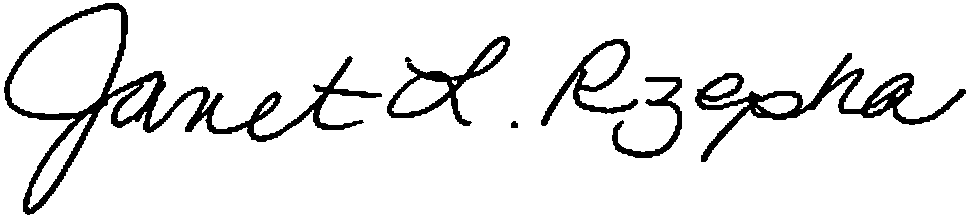 Janet L. Rzepka